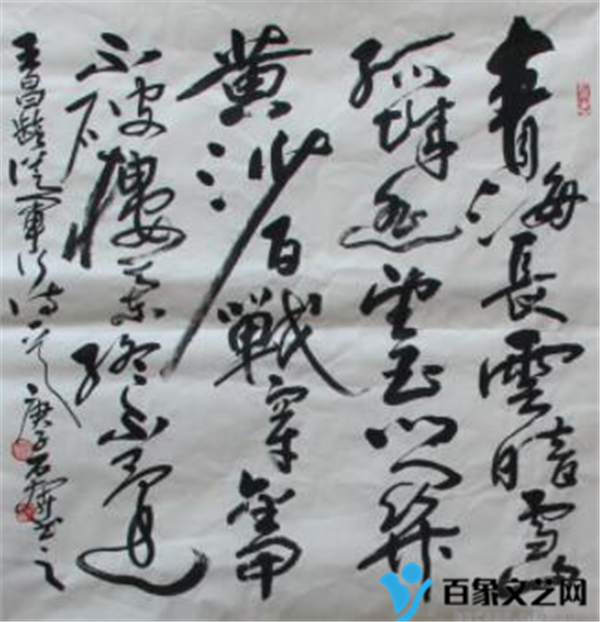 青海長雲暗雪山
孤城遥望玉门关
黄沙百戰穿金甲
不破樓兰終不還
王昌齡從軍行诗一首 庚子石书之
百象文艺网